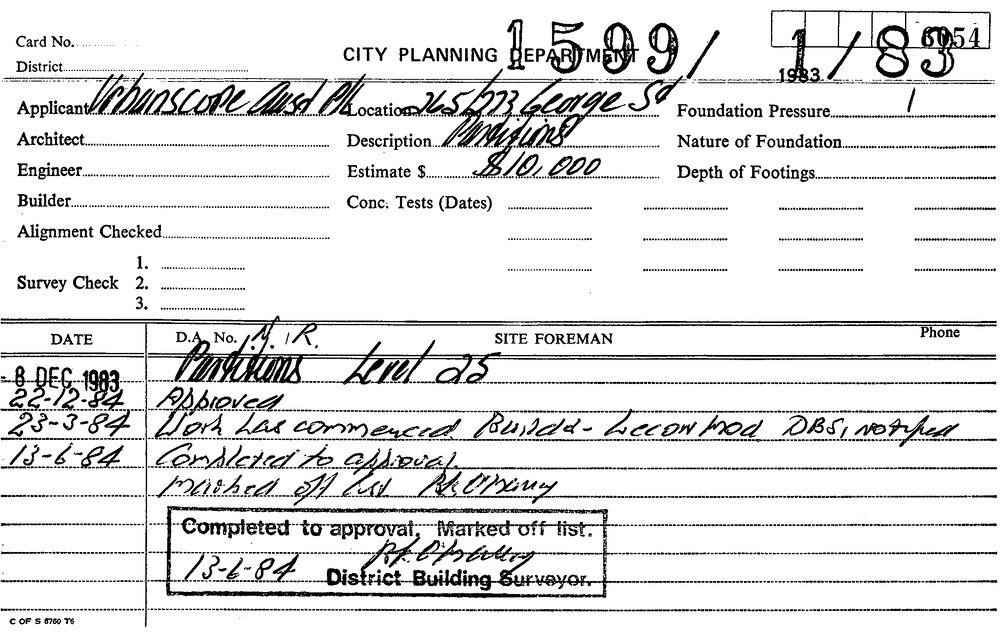 Card No.
CITY PLANNING DEPARTMENT
1599/1/83
6054
District
1983
Applicant Urbanscope Aust P/L Location 265/273 George St Foundation Pressure
Architect Description Partitions Nature of Foundation
Engineer Estimate $ $10,000 Depth of Footings
Builder Conc. Tests (Dates)
Alignment Checked
1.
Survey Check 2.
3.
DATE D.A. No. N.R. SITE FOREMAN Phone
- 8 DEC 1983 Partitions Level 25
22-12-84 Approved
23-3-84 Work has commenced. Builder - Lecon Mod DBS, notified
13-6-84 Completed to approval.
Marked off list
Completed to approval, Marked off list.
13-6-84
District Building Surveyor.
C OF S 6760 T6